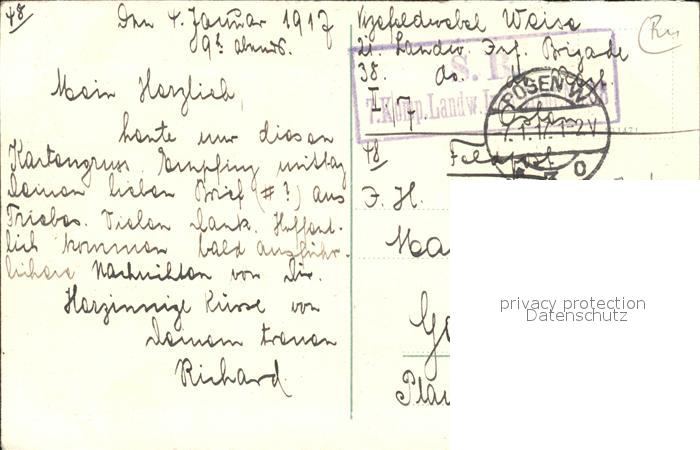 48
Den 4. Januar 1917
9 h abends.
Mein Herzlieb,
heute nur diesen
Kartengruss. Empfing mittag
Deinen lieben Brief (#?) aus
Triebes. Vielen Dank. Hoffent-
lich kommen bald ausführ-
lichere Nachrichten von Dir.
Herzinnige Küsse von
Deinem treuen
Richard
Vizefeldwebel Weise
21. Landw. Inf. Brigade
38. do. do. Rgt.
I 7.
Osten
S. B.
7. Komp. Landw.
POSEN W
7.1.17.1-2V
48 Feldpost
F. H.
Ma
Ge
Plau
privacy protection
Datenschutz